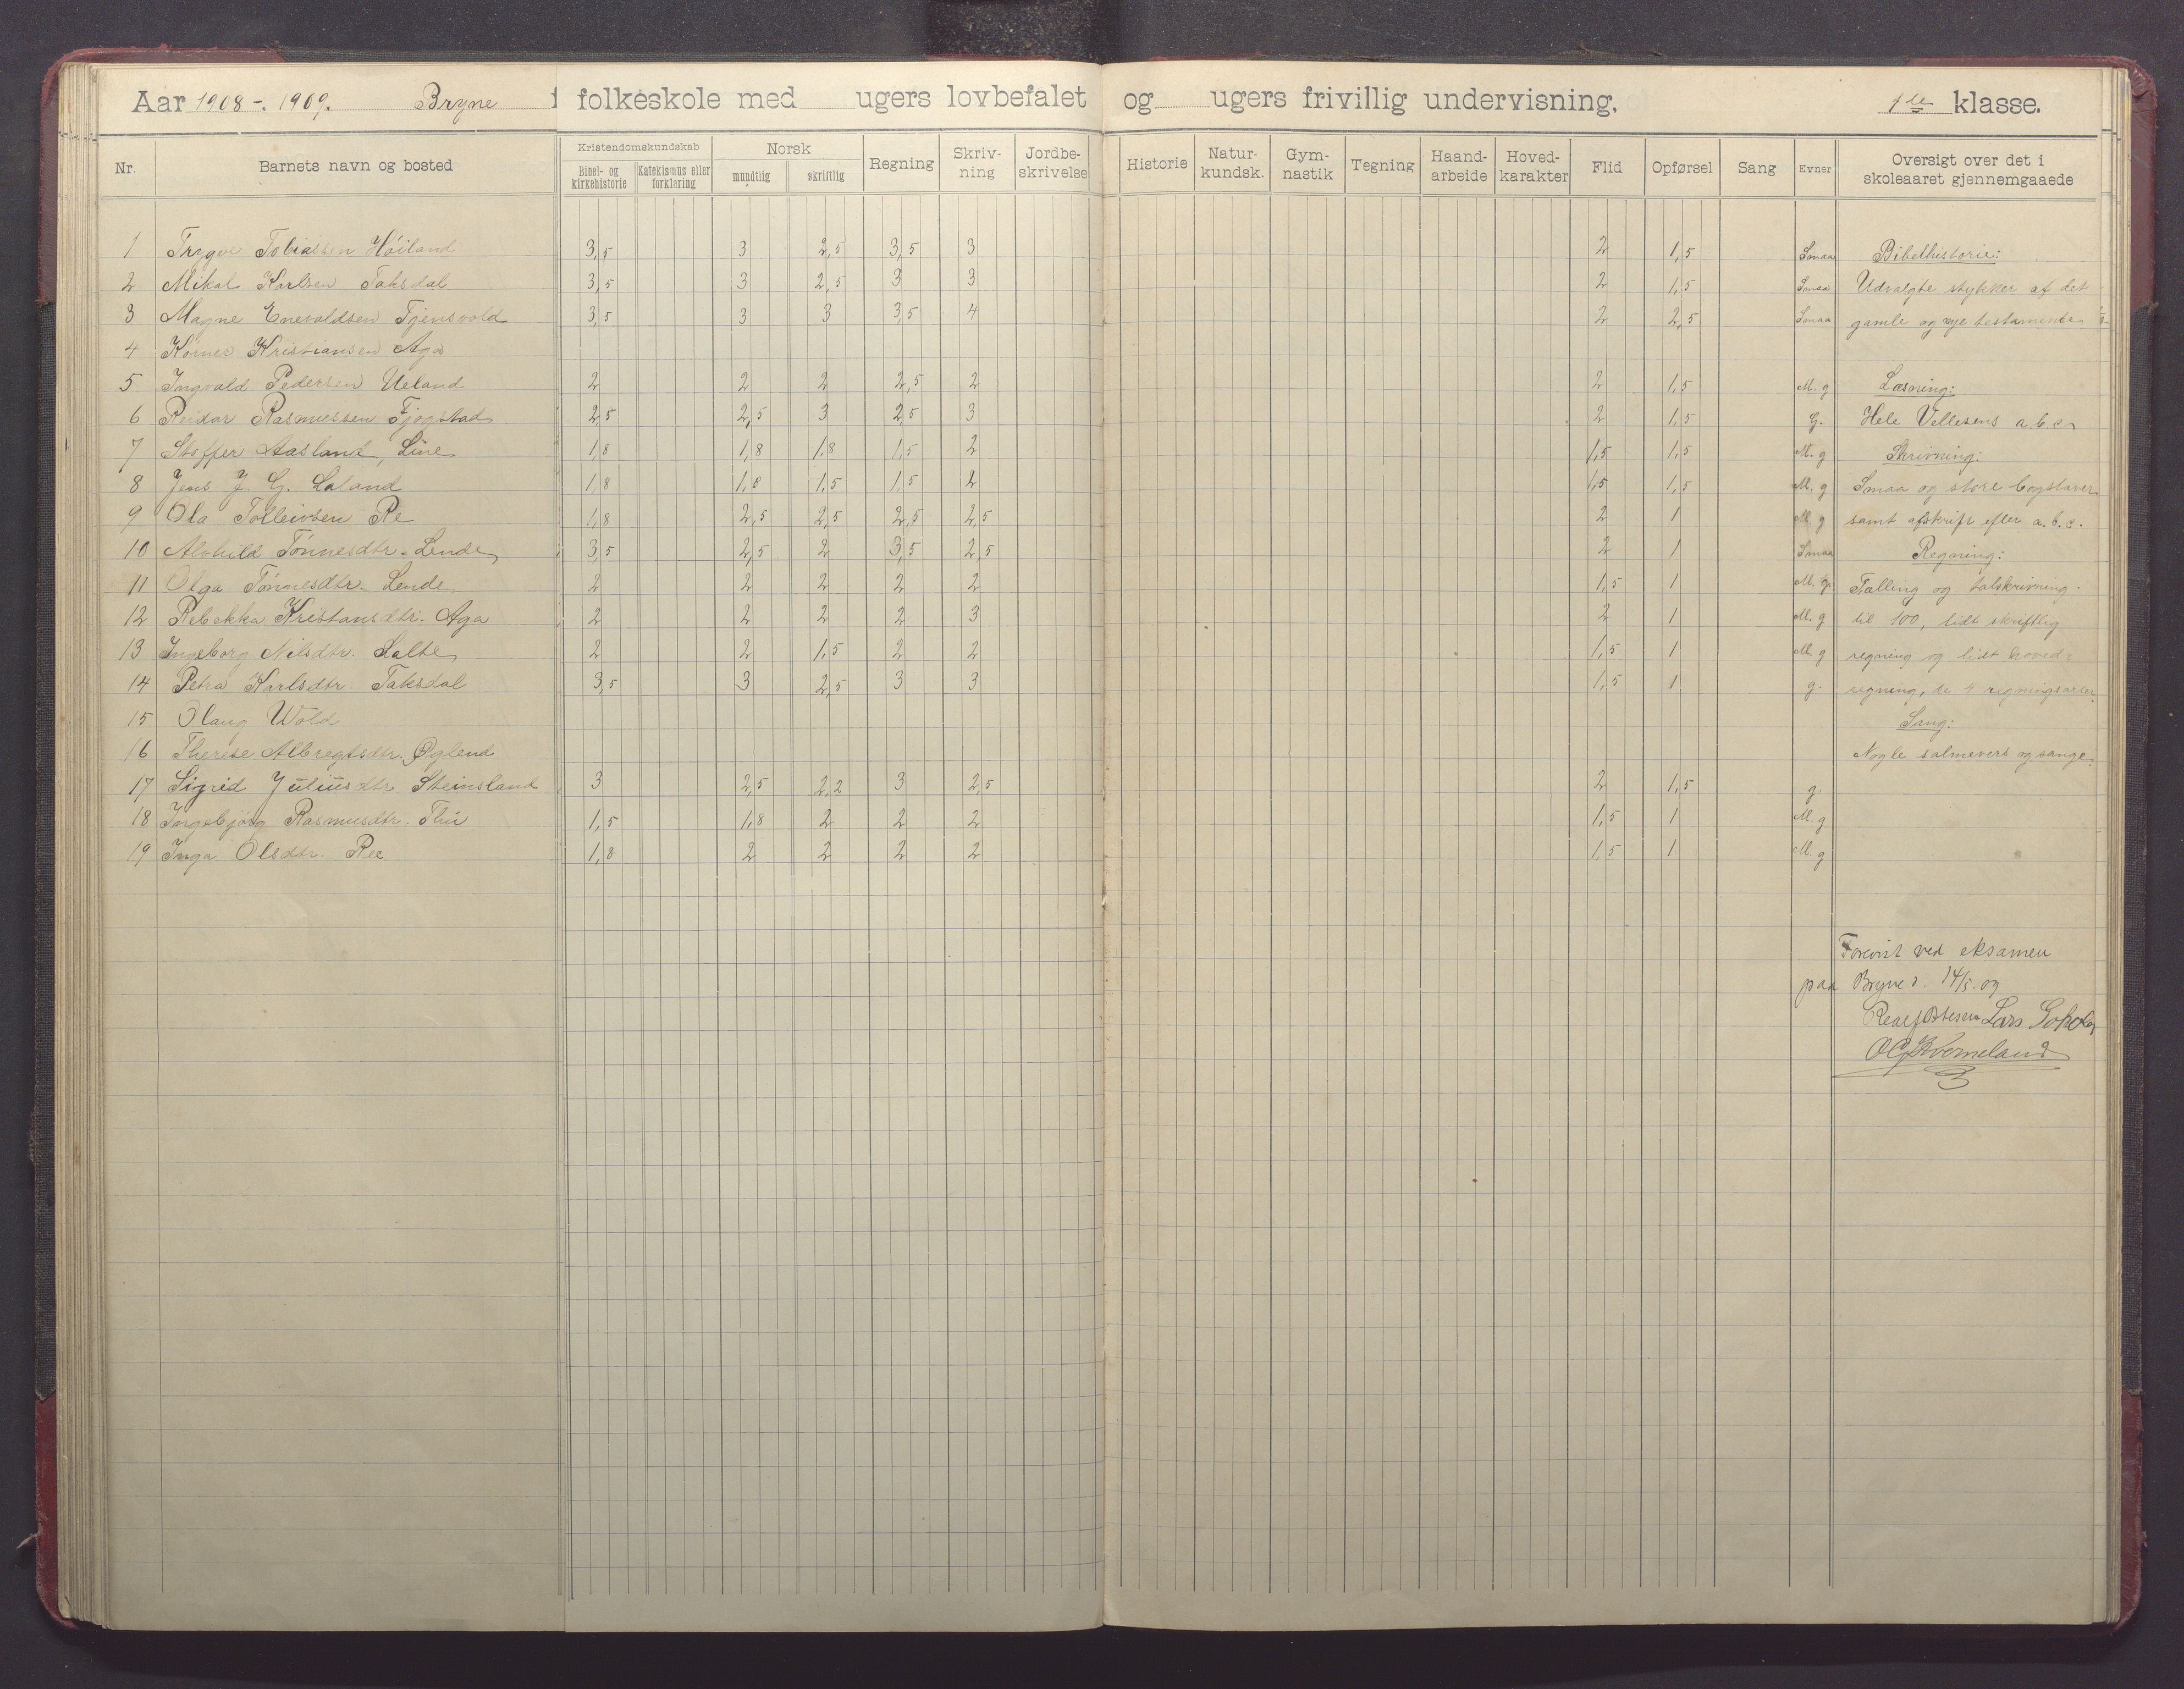 Aar 1908-1909. Bryne folkeskole med ugers lovbefalet og ugers frivillig undervisning, 1ste klasse.
Nr. Barnets navn og bosted Kristendomskundskab Bibel- og kirkehistorie Katekismus eller forklaring Norsk mundtlig skriftlig Regning Skrivning Jordbeskrivelse Historie Naturkundsk. Gymnastik Tegning Haandarbeide Hovedkarakter Flid Opførsel Sang Evner Oversigt over det i skoleaaret gjennemgaaede
1 Trygve Tobiassen Høiland 3,5 3 2,5 3,5 3 2 1,5 Smaa Bibelhistorie:
2 Mikal Karlsen Taksdal 3,5 3 2,5 3 3 2 1,5 Smaa Udvalgte stykker af det
3 Magne Enevoldsen Tjensvold 3,5 3 3 3,5 4 2 2,5 Smaa gamle og nye testamente
4 Kristiansen Aga
5 Ingvald Pedersen Ueland 2 2 2 2,5 2 2 1,5 M. g Læsning:
6 Reidar Rasmussen Fjogstad 2,5 2,5 3 2,5 3 2 1,5 G. Hele Vellesens a.b.c.
7 Steffer Aasland, Line 1,8 1,8 1,8 1,5 2 1,5 1,5 M. g Skrivning:
8 Jens J. G. Laland 1,8 1,8 1,5 1,5 2 1,5 1,5 M. g Smaa og store bogstaver
9 Ola Tolleivsen Re 1,8 2,5 2,5 2,5 2,5 2 1 M. g samt afskrift efter a.b.c.
10 Alvhild Tønnesdtr. Lende 3,5 2,5 2 3,5 2,5 2 1 Smaa Regning:
11 Olga Tønnesdtr. Lende 2 2 2 2 2 1,5 1 M. g. Tælling og talskrivning
12 Rebekka Kristansdtr. Aga 2 2 2 2 3 2 1 M. g til 100, lidt skriftlig
13 Ingeborg Nilsdtr. Salte 2 2 1,5 2 2 1,5 1 M. g regning og lidt hoved-
14 Petra Karlsdtr. Taksdal 3,5 3 2,5 3 3 1,5 1 g. regning, de 4 regningsarter.
15 Olaug Wold Sang:
16 Therese Albregtsdtr. Øglend Nogle salmevers og sange.
17 Sigrid Juliusdtr Steinsland 3 2,5 2,2 3 2,5 2 1,5 g.
18 Ingebjørg Rasmusdtr. Thu 1,5 1,8 2 2 2 1,5 1 M. g
19 Inga Olsdtr. Ree 1,8 2 2 2 2 1,5 1 M. g
Forevist ved eksamen
paa Bryne d. 14/5. 09
Lars
O G Kverneland